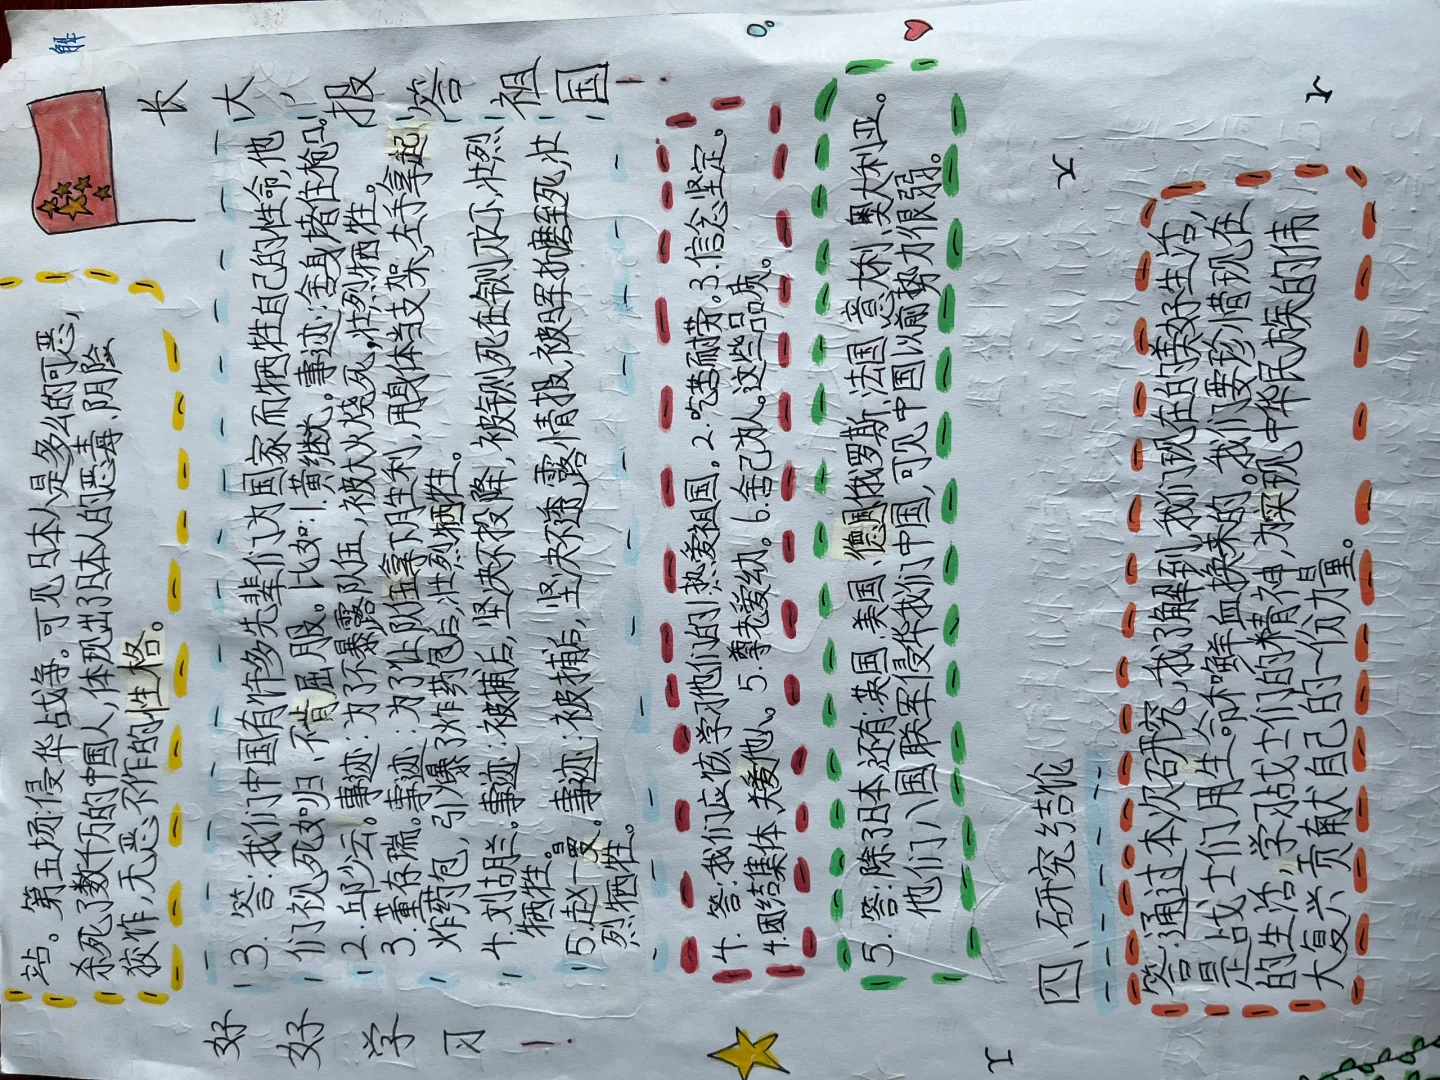 站。第五场:侵华战争。可见日本人是多么的可恶,
杀死了数千万的中国人,体现出了日本人的恶毒,阴险
狡诈,无恶不作的性格。
好好学习!
长大,报答祖国!
3. 答:我们中国有许多先辈们为国家而牺牲自己的性命,他
们视死如归,不肯屈服。比如:1.黄继光。事迹:舍身堵住枪口。
2.邱少云。事迹:为了不暴露队伍,被大火烧死,壮烈牺牲。
3.董存瑞。事迹:为了让队伍拿下月生利,用身体当支架,左手拿起
炸药包,引爆了炸药包后,壮烈牺牲。
4.刘胡兰。事迹:被捕后,坚决不投降,被铡死在铡刀下,壮烈
牺牲。
5.赵一曼。事迹:被捕后,坚决不透露情报,被日军折磨至死,壮
烈牺牲。
4. 答:我们应该学习他们的1.热爱祖国。2.吃苦耐劳。3.信念坚定。
4.团结集体,关爱他人。5.尊老爱幼。6.舍己为人。这些品质。
5. 答:除了日本还有英国、美国、德国、俄罗斯、法国、意大利、奥大利亚。
他们八国联军侵华我们中国,可见中国以前势力很弱。
四、研究结论
答:通过本次研究,我了解到我们现在的美好生活,
是战士们用生命和鲜血换来的。我们要珍惜现在
的生活,学习战士们的精神,为实现中华民族的伟
大复兴贡献自己的一份力量。